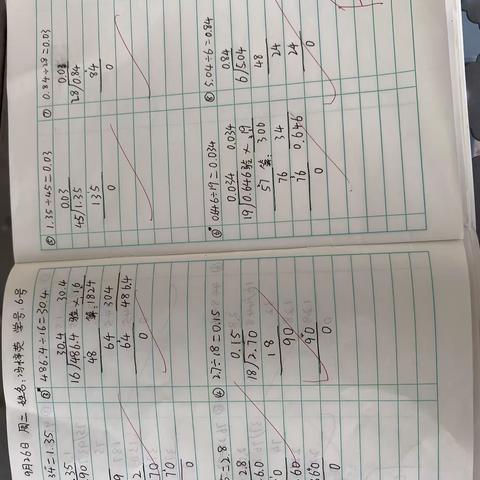 9月26日 周二 姓名:冯梓荧 学号:6号
34=1.35
③ 486.4÷16=30.4
30.4 30.4
16√486.4 验 × 16
48 算:1824
64 304
64 486.4
0
=2.8
2.8
④ 27÷18=0.15
0.15
18√2.70
18
90
90
0
⑤ 1.35÷45=0.03
0.03
45√1.35
135
0
⑥ 0.646÷19=0.034
0.034 0.034
19√0.646 验 × 19
57 算: 306
76 34
76 0.646
0
⑦ 0.84÷28=0.03
0.03
28√0.84
84
0
⑧ 5.04÷6=0.84
0.84
6√5.04
48
24
24
0